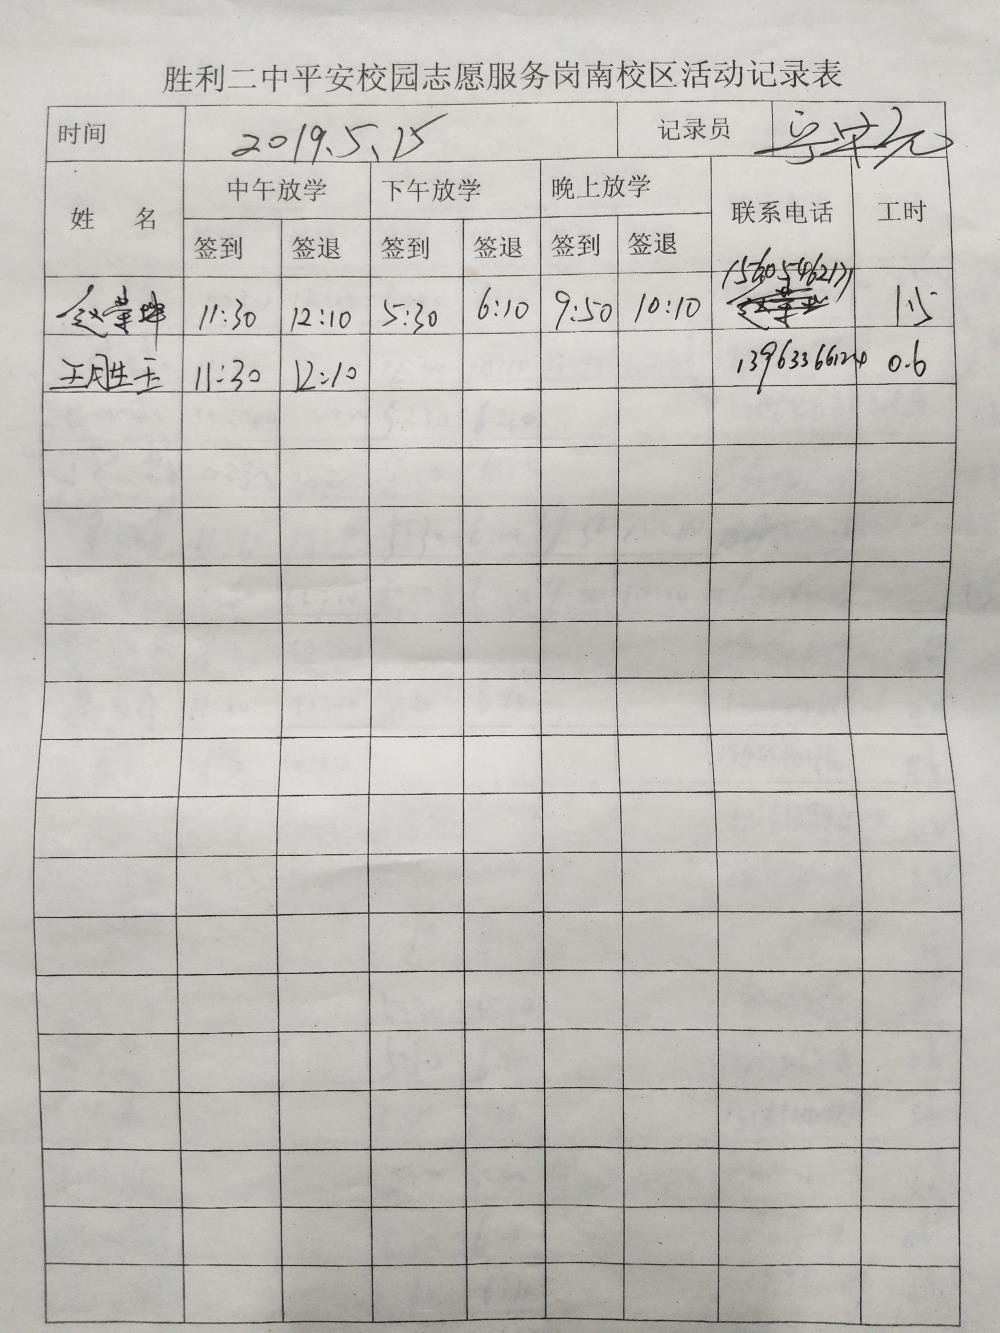 胜利二中平安校园志愿服务岗南校区活动记录表
时间 2019.5.15 记录员
姓 名 中午放学 下午放学 晚上放学 联系电话 工时
签到 签退 签到 签退 签到 签退
赵荣坤 11:30 12:10 5:30 6:10 9:50 10:10 15605462171 1.5
王胜玉 11:30 12:10 0.6